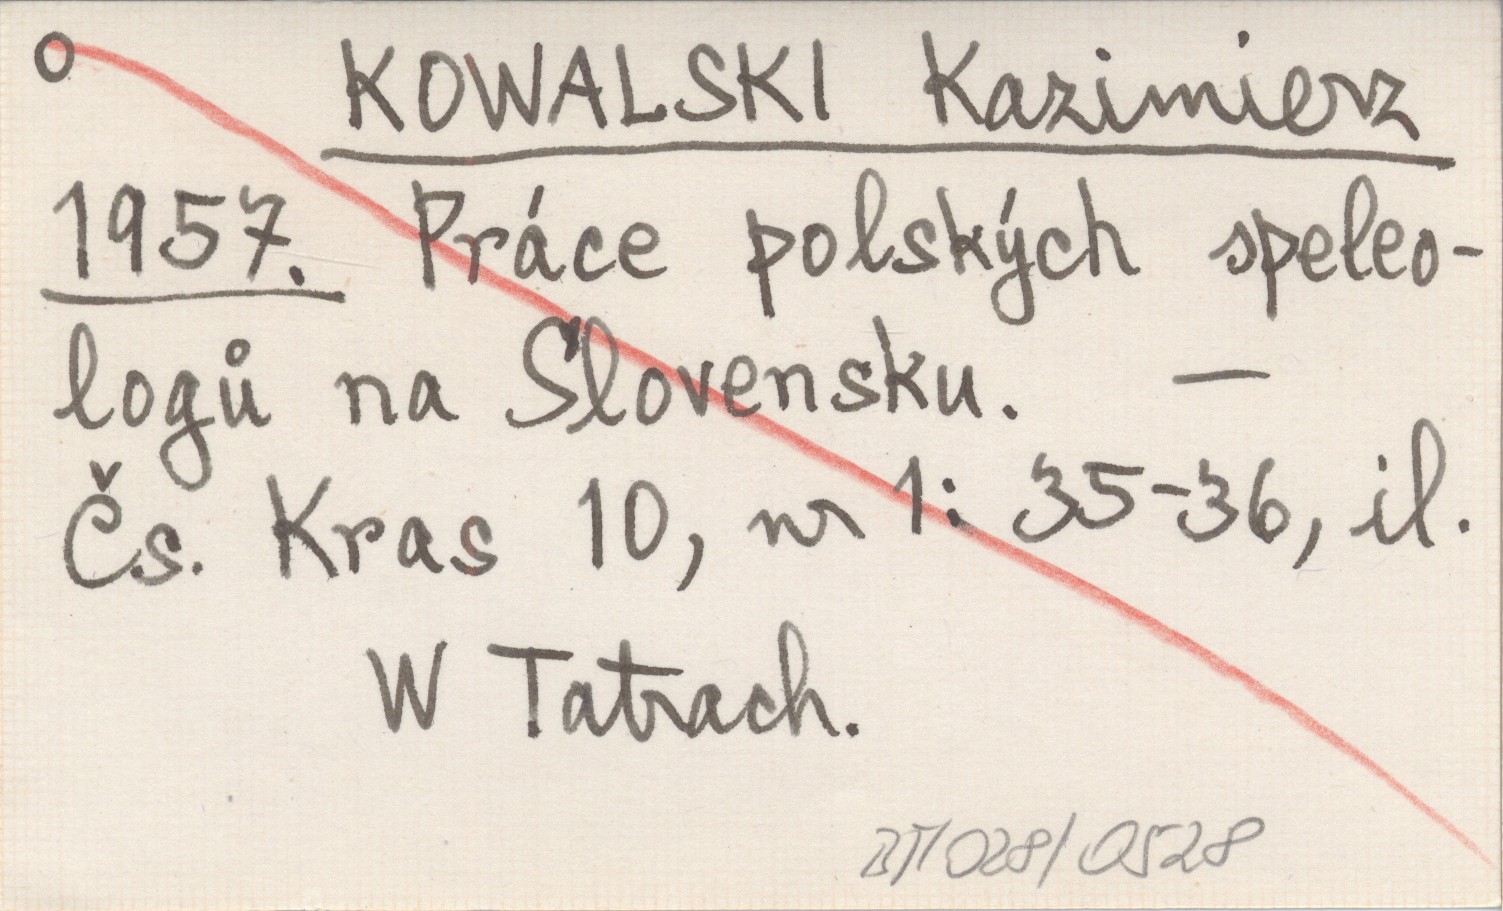 o KOWALSKI Kazimierz
1957. Práce polských speleo-
logů na Slovensku. —
Čs. Kras 10, nr 1: 35-36, il.
W Tatrach.
BT/028/0528